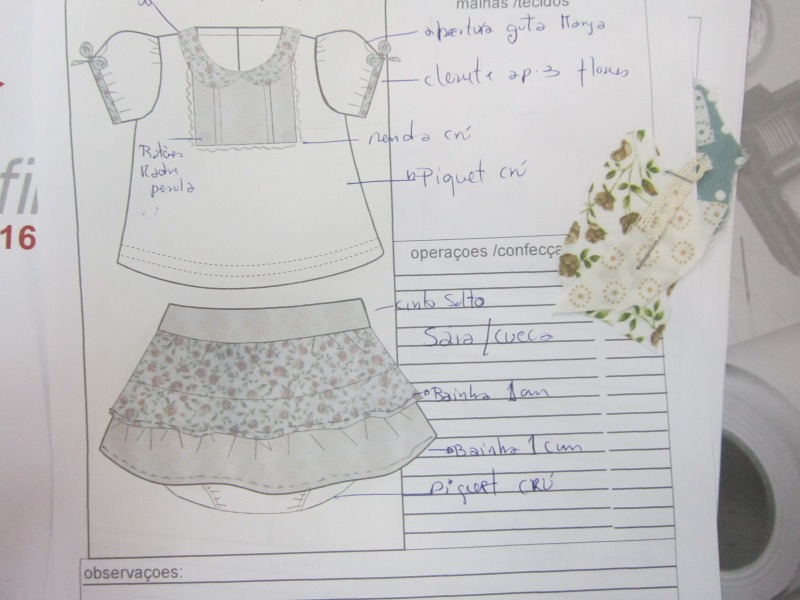 malhas /tecidos
abertura gota Manga
ap. 3 flores
renda crú
Botões
Madre
perola
Piquet crú
operaçoes /confecçã
cinto Solto
Saia/cueca
Bainha 1 cm
Bainha 1 cm
piquet CRÚ
observaçoes:
fil
16